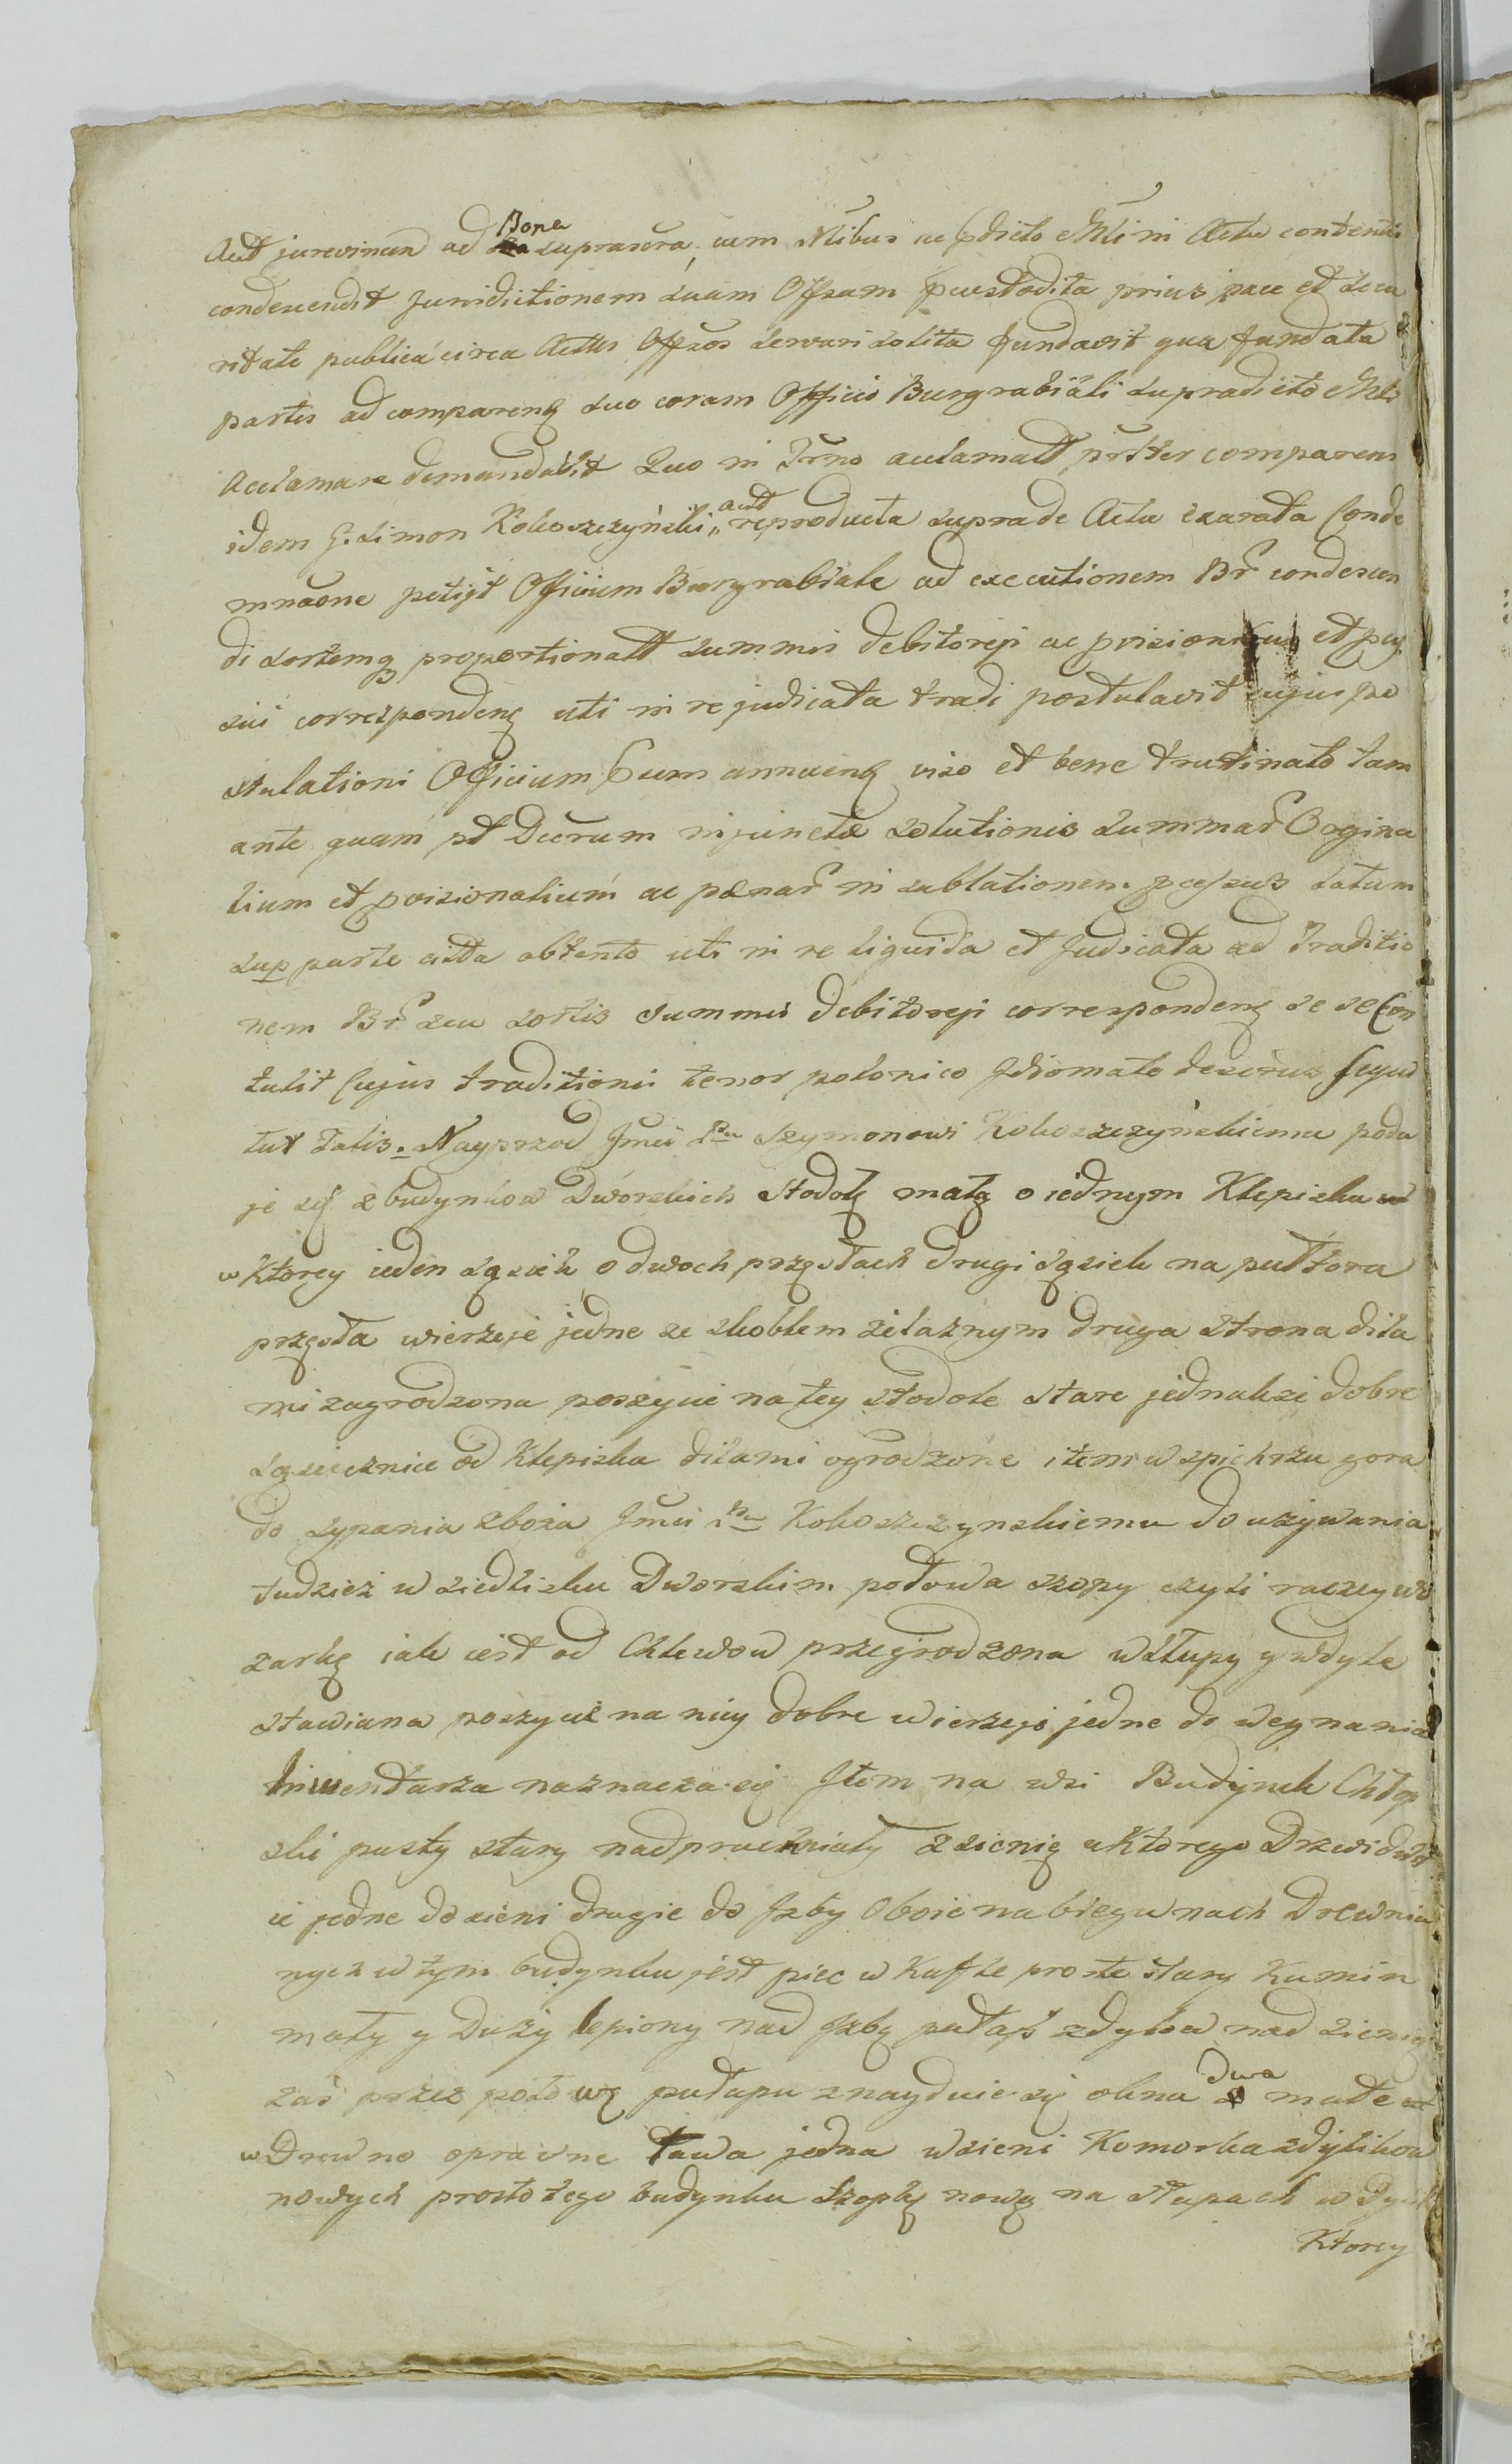 Aut jurevincen ad Bona suprascra, cum Mtibus ac pdicto Mtlini Actu contentis
condescendit Jurisditionem suam Offsam pcustodita prius pace et secu
ritate publica circa Actus Offsos servari solita fundavit qua fundata
partes ad comparenq suo coram Officio Burgrabiali supradicto Mtlo
acclamare demandavit Quo in Trno acclamatt prster comparens
idem G. Simon Kokoszczyński, actt reproducta suprade Actu exarata Conde
mnaone petijt Officium Burgrabiale ad executionem Br condescen
di sortemq proportionatt summis debitoreji ac pvisionibus et pces
sui correspondenq uti in re judicata tradi postulavit cujus po
stulationi Officium psum annuenq viso et bene trutinato tam
ante quam pt Decrum injuncta solutionis summar Orgina
lium et pvisionalium ac pænar in sublationem pcessus latum
sup parte citta obtento uti in re liquida et Judicata ad Traditio
nem Br seu sortis summis debitoreji correspondenq se se Con
tulit Cujus traditionis tenor polonico Idiomate descrius sequi
tur talis. Nayprzod Jmci Pu Szymonowi Kokoszczyńskiemu poda
je się z budynkow Dworskich Stodołę małą o iednym Klepisku
w Ktorey ieden sąsiek o dwoch przęsłach drugi sąsiek na pułtora
przęsła wierzeje jedne ze skoblem żelaznym druga strona dila
mi zagrodzona poszycie na tey stodole stare jednakże dobre
sąsiecznice od Klepiska dilami ogrodzone item w spichrzu gora
do sypania zboża Jmci Pu Kokoszczynskiemu do używania
tudzież w siedlisku Dworskim połowa szopy czyli raczey wo
zarkę iak iest od Chlewow przegrodzona w słupy y w dyle
stawiana poszycie na niey dobre wierzeje jedne do wegnania
Inwentarza naznacza się Jtem na wsi Budynek Chłop
ski pusty stary nadpruchniały z sienią u ktorego Drzwi dwo
ie jedne do sieni drugie do Jzby Oboie na biegunach Drewnia
nych w tym budynku jest piec w Kafle proste stary Kumin
mały y Duży lepiony nad Jzbą pułap z dylow nad sienią
zaś przez połowę pułapu znayduie się okna dwa małe
w Drewno oprawne Ława jedna w sieni Komorka z dylikow
nowych prosto tego budynku Szopkę nową na słupach w Dyl
Ktorey